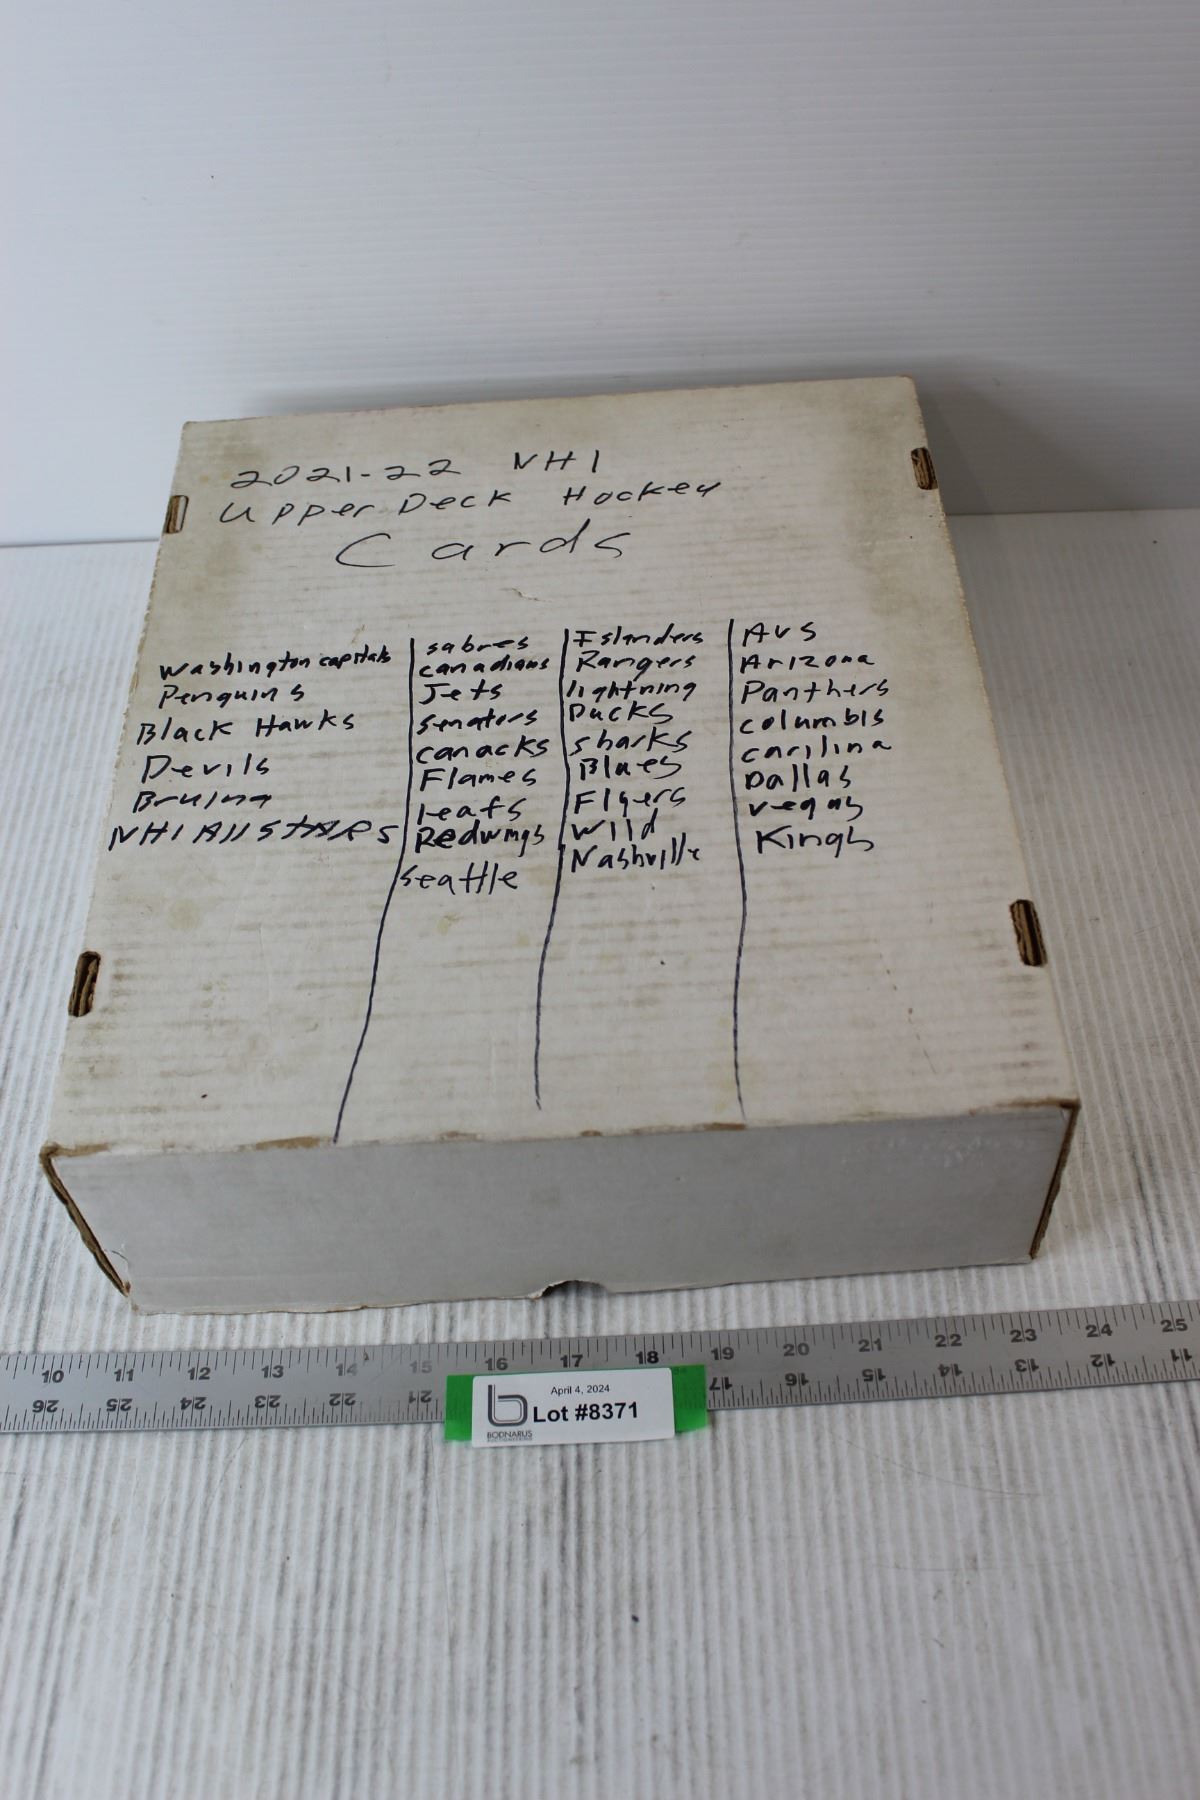 2021-22 NHl
Upper Deck Hockey
Cards
Washington capitals
Penguins
Black Hawks
Devils
Bruins
NHl All stARs
sabres
canadians
Jets
senators
canacks
Flames
leafs
Redwings
seattle
Islanders
Rangers
lightning
Ducks
sharks
Blues
Flyers
Wild
Nashville
AVS
Arizona
Panthers
columbis
carilina
Dallas
vegas
Kings
10 11 12 13 14 15 16 17 18 19 20 21 22 23 24 25
26 25 24 23 22 21 17 16 15 14 13 12 11
April 4, 2024
Lot #8371
BODNARUS
AUCTIONEERING